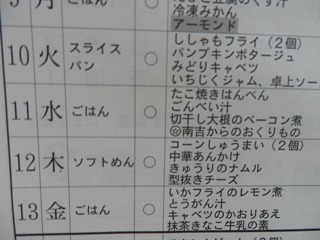 ごはん
冷凍みかん
アーモンド
10 火 スライスパン ○
ししゃもフライ(2個)
パンプキンポタージュ
みどりキャベツ
いちじくジャム、卓上ソー
11 水 ごはん ○
たこ焼きはんぺん
ごんべい汁
切干し大根のベーコン煮
南吉からのおくりもの
12 木 ソフトめん ○
コーンしゅうまい(2個)
中華あんかけ
きゅうりのナムル
型抜きチーズ
13 金 ごはん ○
いかフライのレモン煮
とうがん汁
キャベツのかおりあえ
抹茶きなこ牛乳の素